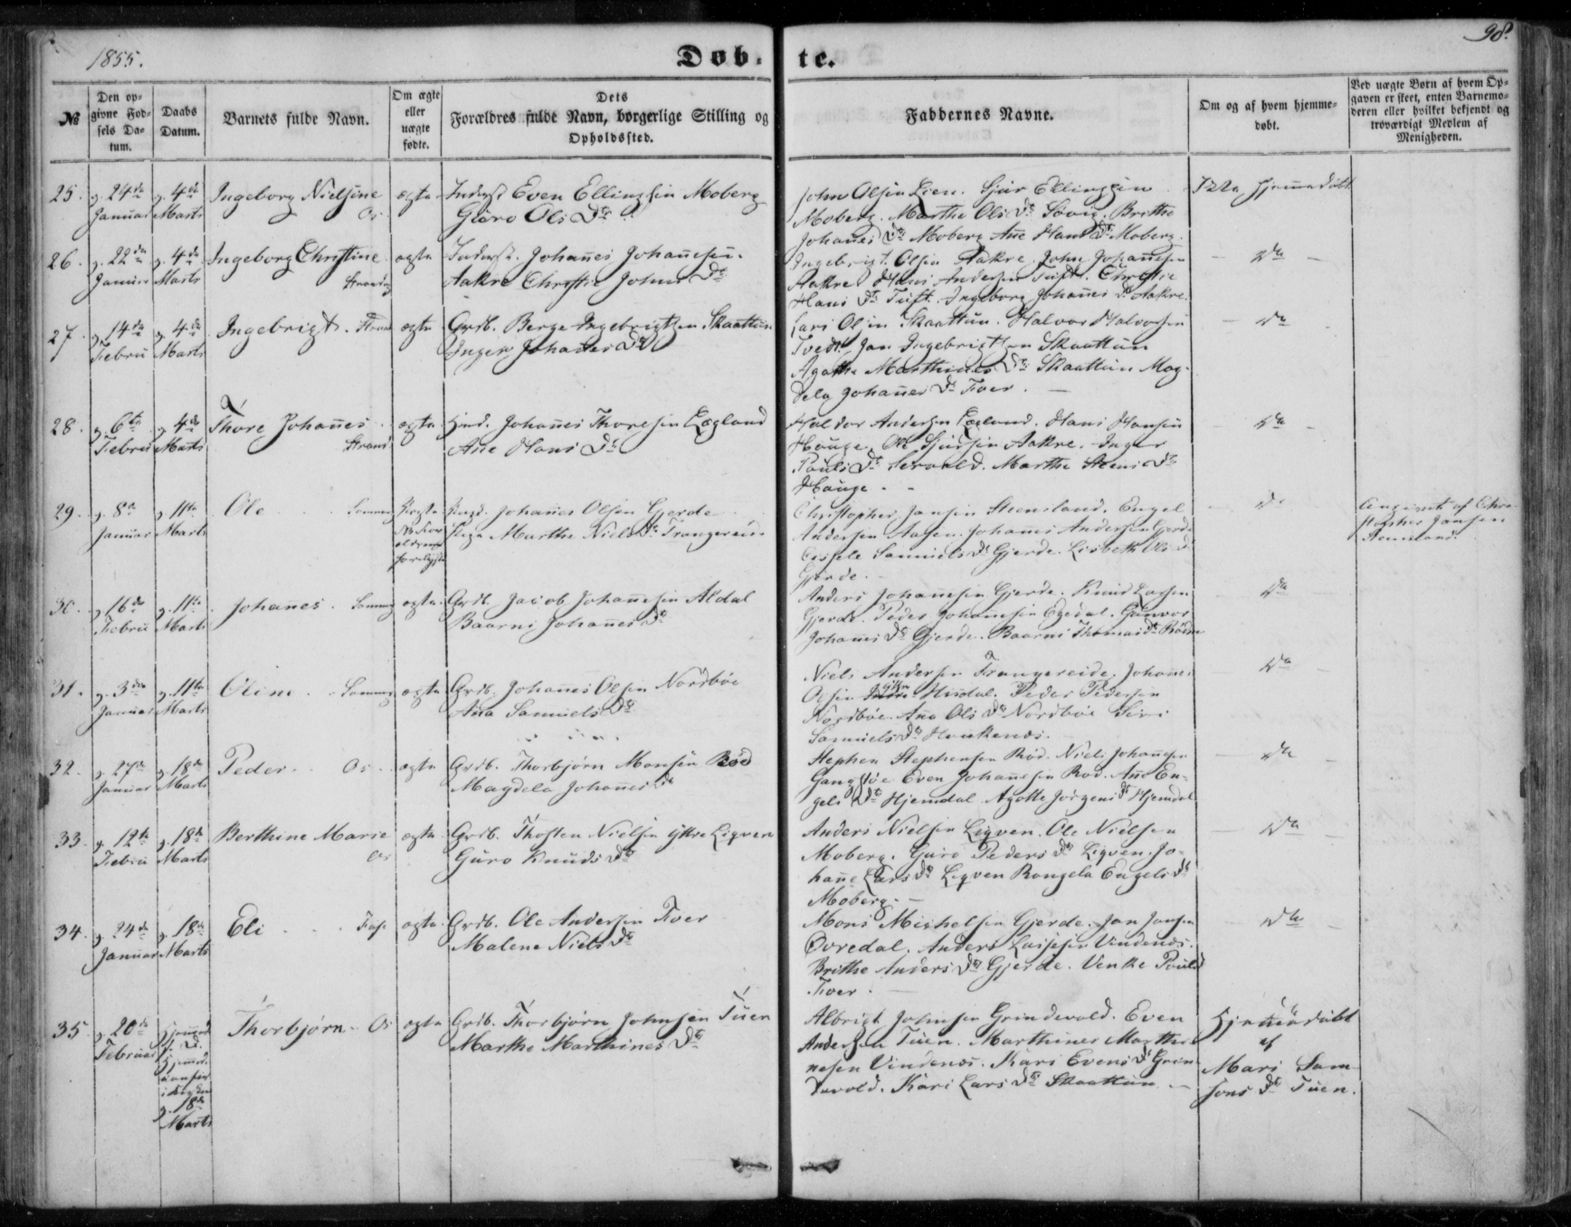 1855.
98.
Døb- te.
№
Den op-
givne Fød-
sels Da-
tum.
Daabs
Datum.
Barnets fulde Navn.
Om ægte
eller
uægte
fødte.
Dets
Forældres fulde Navn, borgerlige Stilling og
Opholdssted.
Faddernes Navne.
Om og af hvem hjemme-
døbt.
Ved uægte Børn af hvem Op-
gaven er skeet, enten Barnemo-
deren eller hvilket bekjendt og
troværdigt Medlem af
Menigheden.
25. 24de Januar 4de Marts Ingeborg Nielsine Os ægte
Even Ellingsen Moberg
Guro Ols Dtr
John Olsen Lien. Sjur Ellingsen
Moberg. Marthe Ols Dr Søvig. Brithe
Johannes Dr Moberg Ane Hans Dr Moberg.
Ikke hjemmedøbt
26. 22de Januar 4de Marts Ingeborg Christine ægte
Johannes Johannesen
Aakre Christie Johns Dr
Ingebrigt Olsen Aakre. John Johannesen
Aakre Hans Andersen Tuft. Christie
Hans Dr Tuft. Ingeborg Johannes Dr Aakre.
Do
27 14de Februar 4de Marts Ingebrigt. ægte
Grdb. Berge Ingebrigtsen Skaattun
Inger Johannes Dr
Lars Olsen Skaattun. Halvor Halvorsen
Tvedt, Jan Ingebrigtsen Skaattun
Agathe Marthines Dr Skaattun Mag-
dela Johannes Dr Tver.
Do
28. 6te Februar 4de Marts Thore Johannes ægte
Johannes Thoresen Lægland
Ane Hans Dr
Haldor Andersen Lægland. Hans Hansen
Hauge. Ole Sjursen Aakre. Inger
Pouls Dr. Marthe Steens Dr
Hauge.
Do
29. 8de Januar 11te Marts Ole
Johannes Olsen Gjerde
Pige Marthe Niels Dr Trængereide
Christopher Jansen Steensland. Engel
Andersen Aasen. Johannes Andersen Gjerde
Samuels Dr Gjerde. Lisbeth Ols Dr
Gjerde.
Do
af Chri-
stopher Jansen
30. 16de Februar 11te Marts Johannes. ægte
Grdb. Jacob Johannesen Aldal
Baarni Johannes Dr
Anders Johannesen Gjerde. Knud Larsen
Gjerde. Peder Johannesen. Gunvor
Johannes Dr Gjerde. Baarni Thomas Dr
Do
31. 3die Januar 11te Marts Oline ægte
Grdb. Johannes Olsen Nordbøe
Anna Samuels Dr
Niels Andersen Trængereide. Johannes
Olsen Hivdal. Peder Pedersen
Nordbøe. Ane Ols Dr Nordbøe Siri
Samuels Dr
Do
32. 27de Januar 18de Marts Peder Os ægte
Grdb. Thorbjørn Monsen Røed
Magdela Johannes Dr
Stephen Stephensen Rød. Niels Johannesen
Gangstøe Even Johannesen Rød. Ane En-
gels Dr Hjemdal Agathe Jørgens Dr Hjemdal
Do
33. 12te Februar 18de Marts Berthine Marie Os ægte
Grdb. Thosten Nielsen yttre Liqven
Guro Knuds Dr
Anders Nielsen Liqven. Ole Nielsen
Moberg. Guro Peders Dr Liqven. Jo-
hanne Lars Dr Liqven Rangela Engels Dr
Moberg.
Do
34. 24de Januar 18de Marts Eli ægte
Grdb. Ole Andersen Tver
Malene Niels Dr
Mons Michelsen Gjerde. Jan Jansen
Øvredal. Anders Lassesen Vindenæs.
Brithe Anders Dr Gjerde. Venke Pouls Dr
Tver.
Do
35. 20de Februar 18de Marts Thorbjørn Os ægte
Grdb. Thorbjørn Johnsen Tuen
Marthe Marthines Dr
Albrigt Johnsen Grindevold. Even
Andersen Tuen. Marthines Marthi-
nesen Vindenæs. Kari Evens Dr Grin-
devold. Kari Lars Dr Skaattun.
Hjemmedøbt
af
Mari Sam-
sons Dr Tuen.